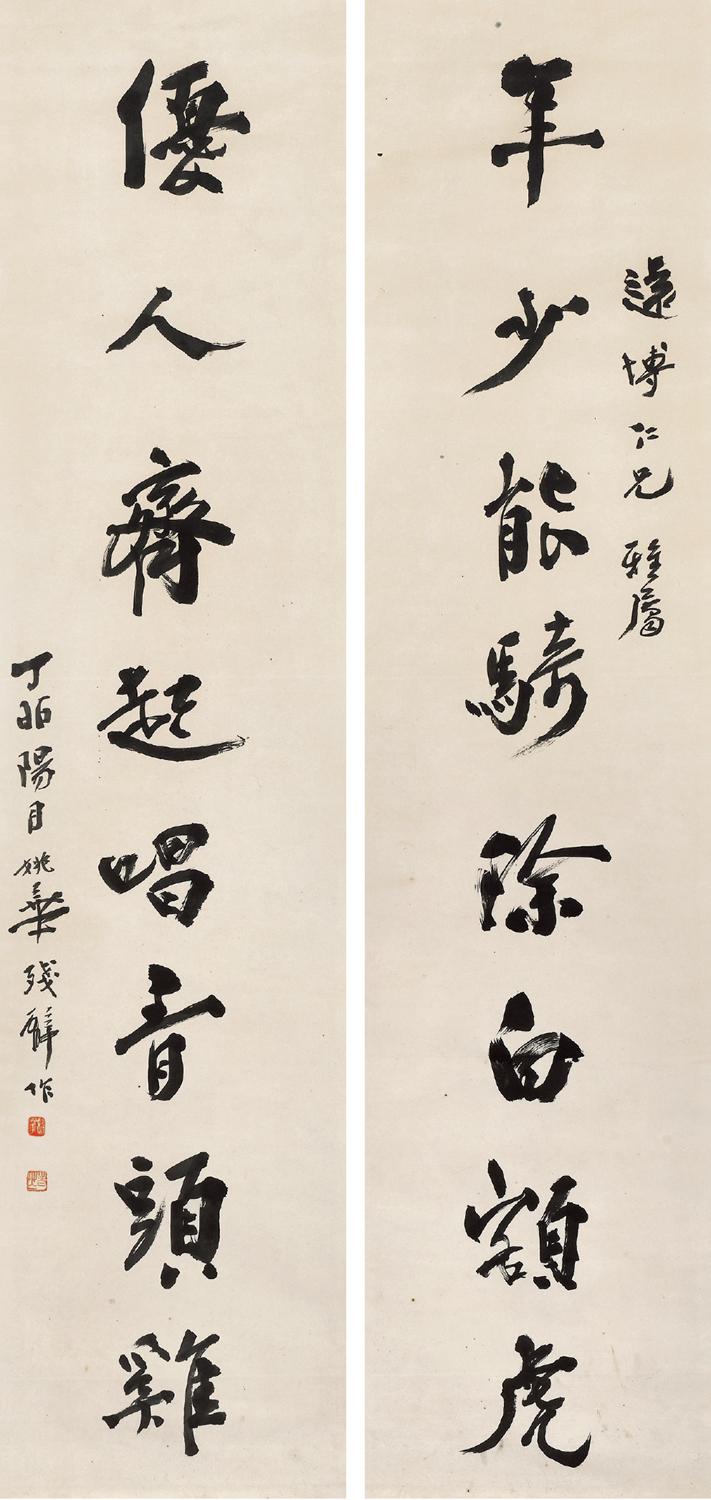 遠博仁兄 雅屬
年少能騎除白額虎
優人齊起唱青頭雞
丁卯陽月姚華殘臂作